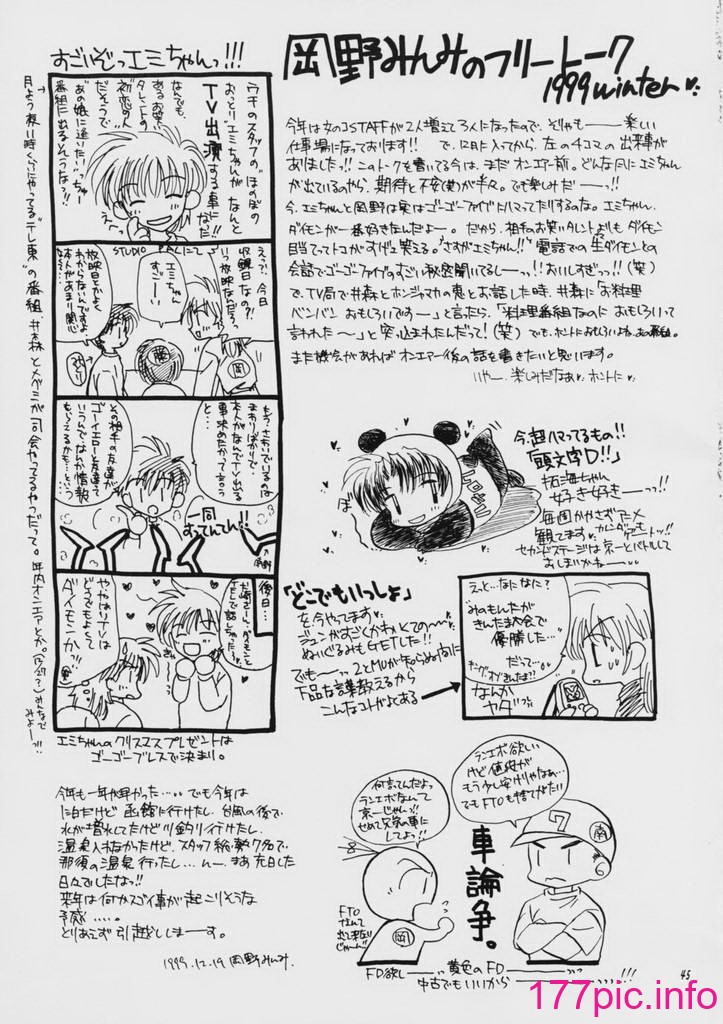 岡野みんみのフリートーク
1999 winter
今年は女のコSTAFFが2人増えて3人になったので、ぞやもーー楽しい
仕事場になっております!! で、12月に入ってから、左の4コマの出来事が
ありました!! このトークを書いてる今は、まだオンエアー前。どんなFに エミちゃん
が出ているのやら、期待と不安(め)が半々。でも楽しみだーーっ!!
今、エミちゃんと岡野は実はゴーゴーファイブにハマってたりするのな。エミちゃん、
ダイモンが一番好きなんだよー。だから、相手のお笑いタレントよりもダイモン
目当てってトコがすげー笑える。"さすがエミちゃん!!" 電話での生ダイモンとの
会話でゴーゴーファイブのすごい秘密聞いてるしーっ!!おいしすぎっ!!(笑)
で、TV局で井森とホンジャマカの恵とお話した時、井森に「お料理
バンバン おもしろいですー」と言ったら、「料理番組なのに おもしろいって
言われた〜」と突っ込まれたんだって!(笑) でも、ホントにおもしろいよね、あの番組。
また機会があれば オンエアー後の話を書きたいと思います。
いやー、楽しみだなぁ ホントに
すごいぞっエミちゃんっ!!!
ウチのスタッフの"ほのぼの
おっとり"エミちゃんが なんと
TV出演する事に
なだ!!
なんでも、
あるお笑い
タレントの
初恋の人
だそうで
"あの娘に逢いたい"ちゅー
番組に出るそうなっ!!
STUDIO
えっ?、今日
収録日なの?!
いつ放映なんだろっ
エミちゃん
すごーーい
放映日とかよく
わからないんですよ
本人があまり関心
もう、さわいでいるのは
まわりばかりで、
本人がなんでTV出る
事決めたかて言う
と…
その相手の友達が
ゴーイエローと友達って
いうんでなんか情報
もらえるかも…という
一同
すってんてん!!
後日…
岡崎さーん、ダイモンと
TELで話しちゃったーっ
やっぱりTVは
どうでもよくて
ダイモンかっ!!
エミちゃんのクリスマスプレゼントは
ゴーゴーブレスで決まり。
月よう夜11時くらいにやってる"テレ東"の番組、井森とメグミが司会やってるやつだって。年内オンエアとか。(乃公?) みんなで
みよーっ!!
今、超ハマってるもの!!
「頭文字D!!」
拓海ちゃん
好き好きーーっ!!
毎回かかさずに
観てます カレンダーもゲットッ!!
セカンドステージは京一とバトルして
おしまいかねー
「どこでもいっしょ」
を今やってます
ジュンがすごくかわいくての〜
ぬいぐるみもGETした!!
でもーっ 2とMUが知らぬ内に
下品な言葉教えるから
こんなコトがよくある
えっと…なになに?
みのもんたが
きんたま大会で
優勝した…
だって…
キング、オブきんたま??
なんか
ヤダ
今年も一年が早かった……でも今年は
1泊だけど函館に行けたし、台風の後で
水が増水してたけど川釣り行けたし、
温泉入れなかったけど、スタッフ総勢7名で
那須の温泉行ったし…んー、まあ充実した
日々でしたなっ!!
来年は何かスゴイ事が起こりそうな
予感……。
とりあえず引越ししまーす。
1999.12.19 岡野みんみ.
ランエボ欲しい
けど値段が
もう少し安けりゃなぁ…
でもFTOも捨てがたい
何言ってんだよっ
ランエボなんて
京一じゃん!!
せめて兄貴の車に
してよっ!!
車論争。
FTO
なんて
出て来ない
じゃーん!!
FD欲しーーっ 黄色のFDーーっ
中古でもいいからーーっ!!!
45
177pic.info